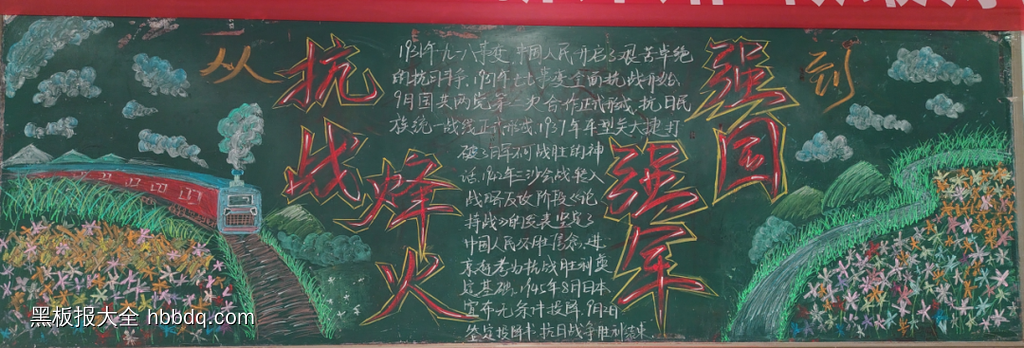 从
抗战
烽火
到
强国
强军
1931年九一八事变,中国人民开启了艰苦卓绝
的抗日斗争,1937年七七事变全面抗战开始,
9月国共两党第二次合作正式形成,抗日民
族统一战线正式形成,1937年平型关大捷打
破了日军不可战胜的神
话,
战略反攻阶段,论
持战的发表坚定了
中国人民 信念,
抗战胜利奠
定基础,1945年8月日本
宣布无条件投降,9月2日
签定投降书抗日战争胜利结束.
黑板报大全 hbbdq.com